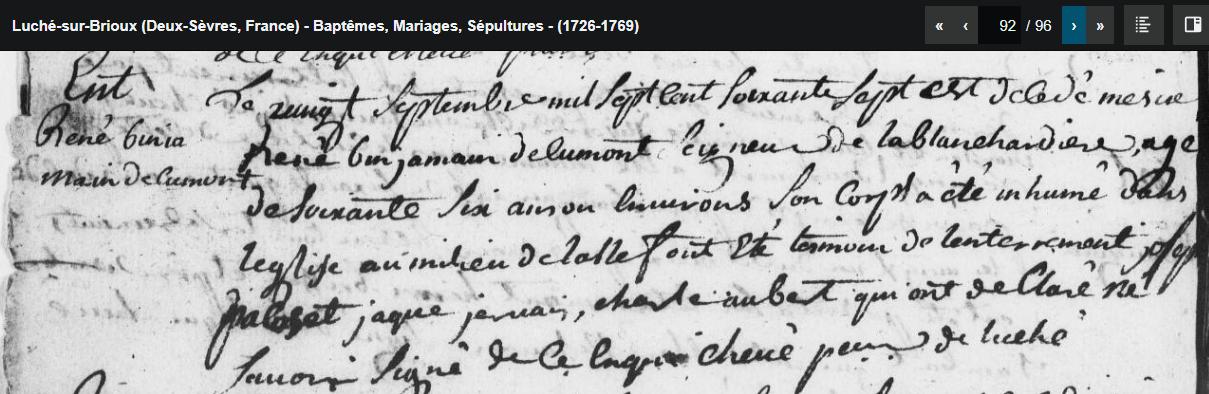 Luché-sur-Brioux (Deux-Sèvres, France) - Baptêmes, Mariages, Sépultures - (1726-1769)
« ‹ 92 / 96 › »
Ent
René binia
main delumont
Le vingt septembre mil sept cent soixante sept est decedé mesire
René binjamain delumont seigneur de la blanchardiere, age
de soixante six ans ou environs son corps a été inhumé dans
leglise au milieu de la Nef ont été temoin de lenterrement josep
jaque jervais, charle aubert qui ont declaré ne
savoir signé de ce enqui cheué de luché